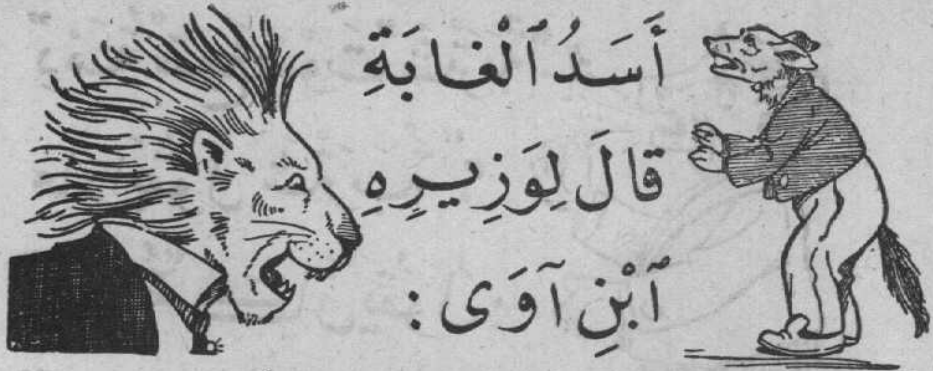 أَسَدُ ٱلْغَابَةِ
قَالَ لِوَزِيرِهِ
ٱبْنِ آوَى :